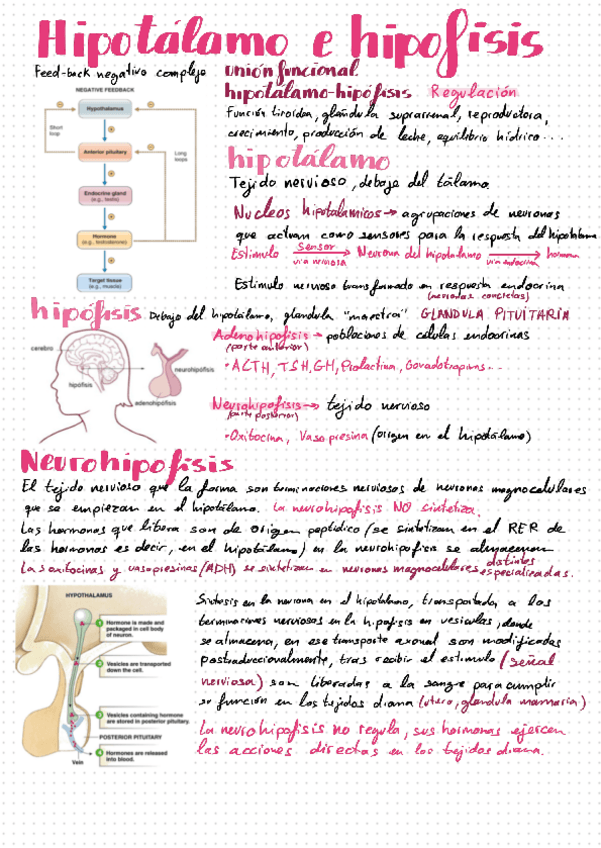 Hipotálamo e hipofisis
Feed-back negativo complejo
NEGATIVE FEEDBACK
Hypothalamus
Short
loop
Anterior pituitary
Long
loops
Endocrine gland
(e.g., testis)
Hormone
(e.g., testosterone)
Target tissue
(e.g., muscle)
unión funcional
hipotálamo-hipófisis Regulación
Función tiroidea, glándula suprarrenal, reproductora,
crecimiento, producción de leche, equilibrio hídrico...
hipotálamo
Tejido nervioso, debajo del tálamo.
Nucleos hipotalamicos → agrupaciones de neuronas
que actuan como sensores para la respuesta del hipotalamo
Estimulo Sensor via nerviosa → Neurona del hipotalamo via endocrina → hormona
Estimulo nervioso transformado en respuesta endocrina
hipófisis Debajo del hipotálamo, glandula "maestra" GLANDULA PITUITARIA
cerebro
hipófisis
neurohipófisis
adenohipófisis
Adenohipofisis → poblaciones de celulas endocrinas
(parte anterior)
• ACTH, TSH, GH, Prolactina, Gonadotropinas...
Neurohipofisis → tejido nervioso
(parte posterior)
• Oxitocina, Vasopresina (origen en el hipotálamo)
Neurohipofisis
El tejido nervioso que la forma son terminaciones nerviosas de neuronas magnocelulares
que se empiezan en el hipotálamo. La neurohipofisis NO sintetiza.
Las hormonas que libera son de origen peptidico (se sintetizan en el RER de
las hormonas es decir, en el hipotálamo) en la neurohipofisis se almacenan
Las oxitocinas y vasopresinas (ADH) se sintetizan en neuronas magnocelulares distintas especializadas.
HYPOTHALAMUS
1 Hormone is made and
packaged in cell body
of neuron.
2 Vesicles are transported
down the cell.
3 Vesicles containing hormone
are stored in posterior pituitary.
POSTERIOR PITUITARY
4 Hormones are released
into blood.
Vein
Sintesis en la neurona en el hipotálamo, transportada a las
terminaciones nerviosas en la hipofisis en vesiculas, donde
se almacena, en ese transporte axonal son modificadas
postraduccionalmente, tras recibir el estimulo (señal
nerviosa) son liberadas a la sangre para cumplir
su función en los tejidos diana (utero, glandula mamaria)
La neurohipofisis no regula, sus hormonas ejercen
las acciones directas en los tejidos diana.